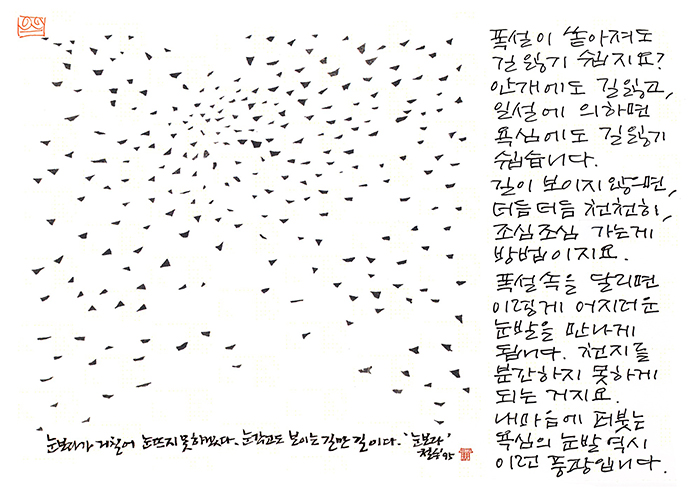 폭설이 쏟아져도
길 잃기 쉽지요?
안개에도 길잃고,
일설에 의하면
욕심에도 길잃기
쉽습니다.
길이 보이지 않으면,
더듬더듬 천천히,
조심조심 가는게
방법이지요.
폭설속을 달리면
이렇게 어지러운
눈발을 만나게
됩니다. 천지를
분간하지 못하게
되는 거지요.
내마음에 퍼붓는
욕심의 눈발 역시
이런 풍광입니다.
눈보라가 거칠어 눈뜨지 못하겠다. 눈감고도 보이는 길만 길이다. '눈보라'
철수 95